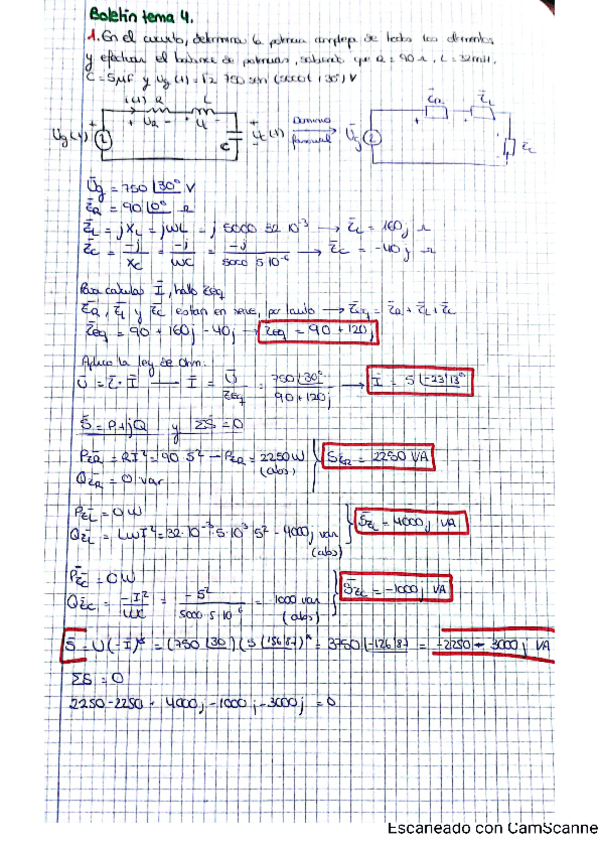 Boletín tema 4.
1. En el circuito, determina la potencia compleja de todos los elementos
y efectúa el balance de potencias, sabiendo que R = 90 Ω, L = 32 mH,
C = 5 μF y Ug(t) = √2 750 sen(5000t + 30°) V
i(t) R L
Ug(t) + UR - + UL - C Uc(t) Dominio fasorial Ūg Z̄R Z̄L Z̄C
Ūg = 750 |30° V
Z̄R = 90 |0° Ω
Z̄L = jXL = jωL = j 5000 32 10⁻³ → Z̄L = 160j Ω
Z̄C = -j/XC = -j/ωC = -j/5000 5·10⁻⁶ → Z̄C = -40j Ω
Para calcular Ī, hallo Z̄eq
Z̄R, Z̄L y Z̄C están en serie, por tanto → Z̄eq = Z̄R + Z̄L + Z̄C
Z̄eq = 90 + 160j - 40j → Z̄eq = 90 + 120j
Aplico la ley de Ohm.
Ū = Z̄·Ī → Ī = Ū/Z̄eq = 750|30°/90+120j → Ī = 5 |-23'13°
S̄ = P + jQ y ΣS = 0
PZR = RI² = 90 5² → PZR = 2250 W (abs)
QZR = 0 var
SZR = 2250 VA
PZL = 0 W
QZL = LωI² = 32·10⁻³·5·10³·5² = 4000j var (abs)
S̄ZL = 4000j VA
PZC = 0 W
QZC = -I²/ωC = -5²/5000·5·10⁻⁶ = -1000 var (abs)
S̄ZC = -1000j VA
S̄ = U(-I)* = (750 |30)(5 |156'87)* = 3750 |-126'87 = -2250 - 3000j VA
ΣS = 0
2250 - 2250 + 4000j - 1000j - 3000j = 0
Escaneado con CamScanne